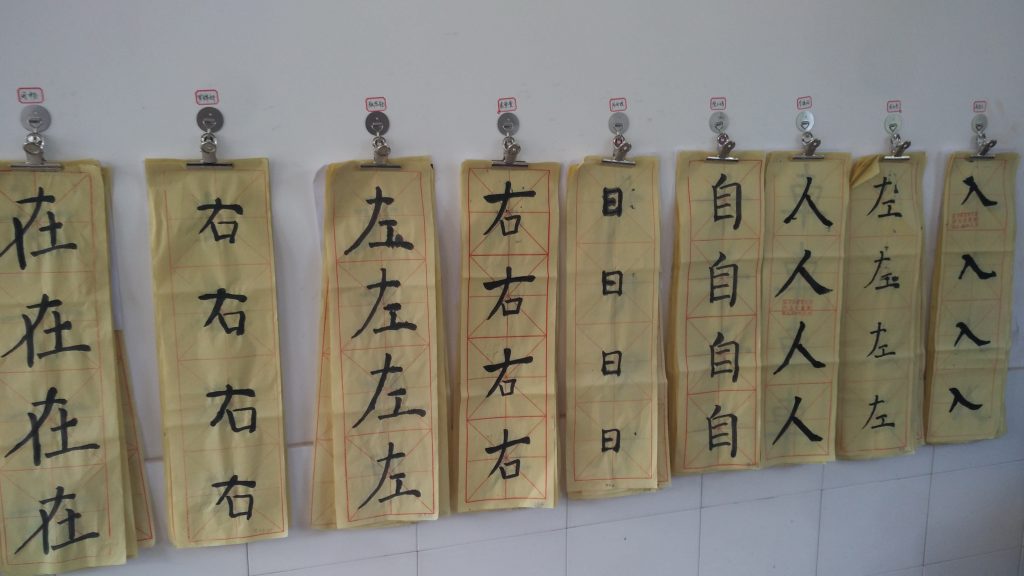 在
在
在
在
右
右
右
右
左
左
左
左
右
右
右
右
日
日
日
日
自
自
自
自
人
人
人
人
左
左
左
左
入
入
入
入